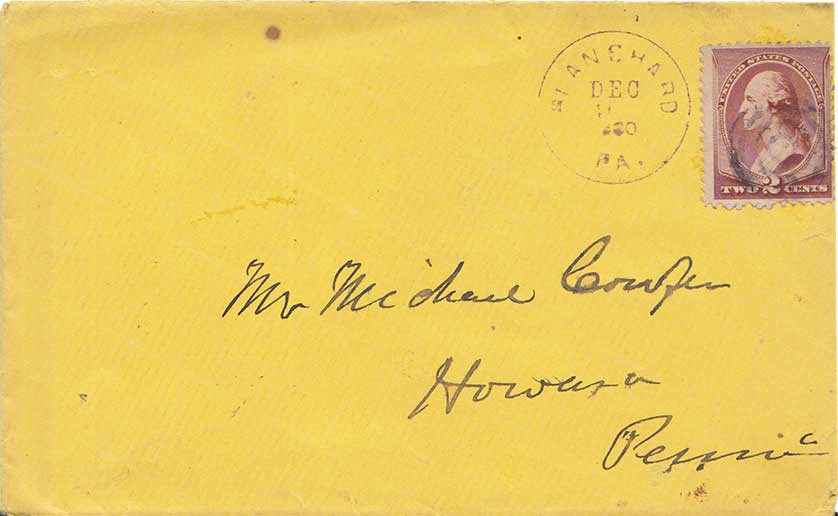 BLANCHARD
DEC
PA.
UNITED STATES POSTAGE
TWO 2 CENTS
Mr Michael Confer
Howard
Penn'a